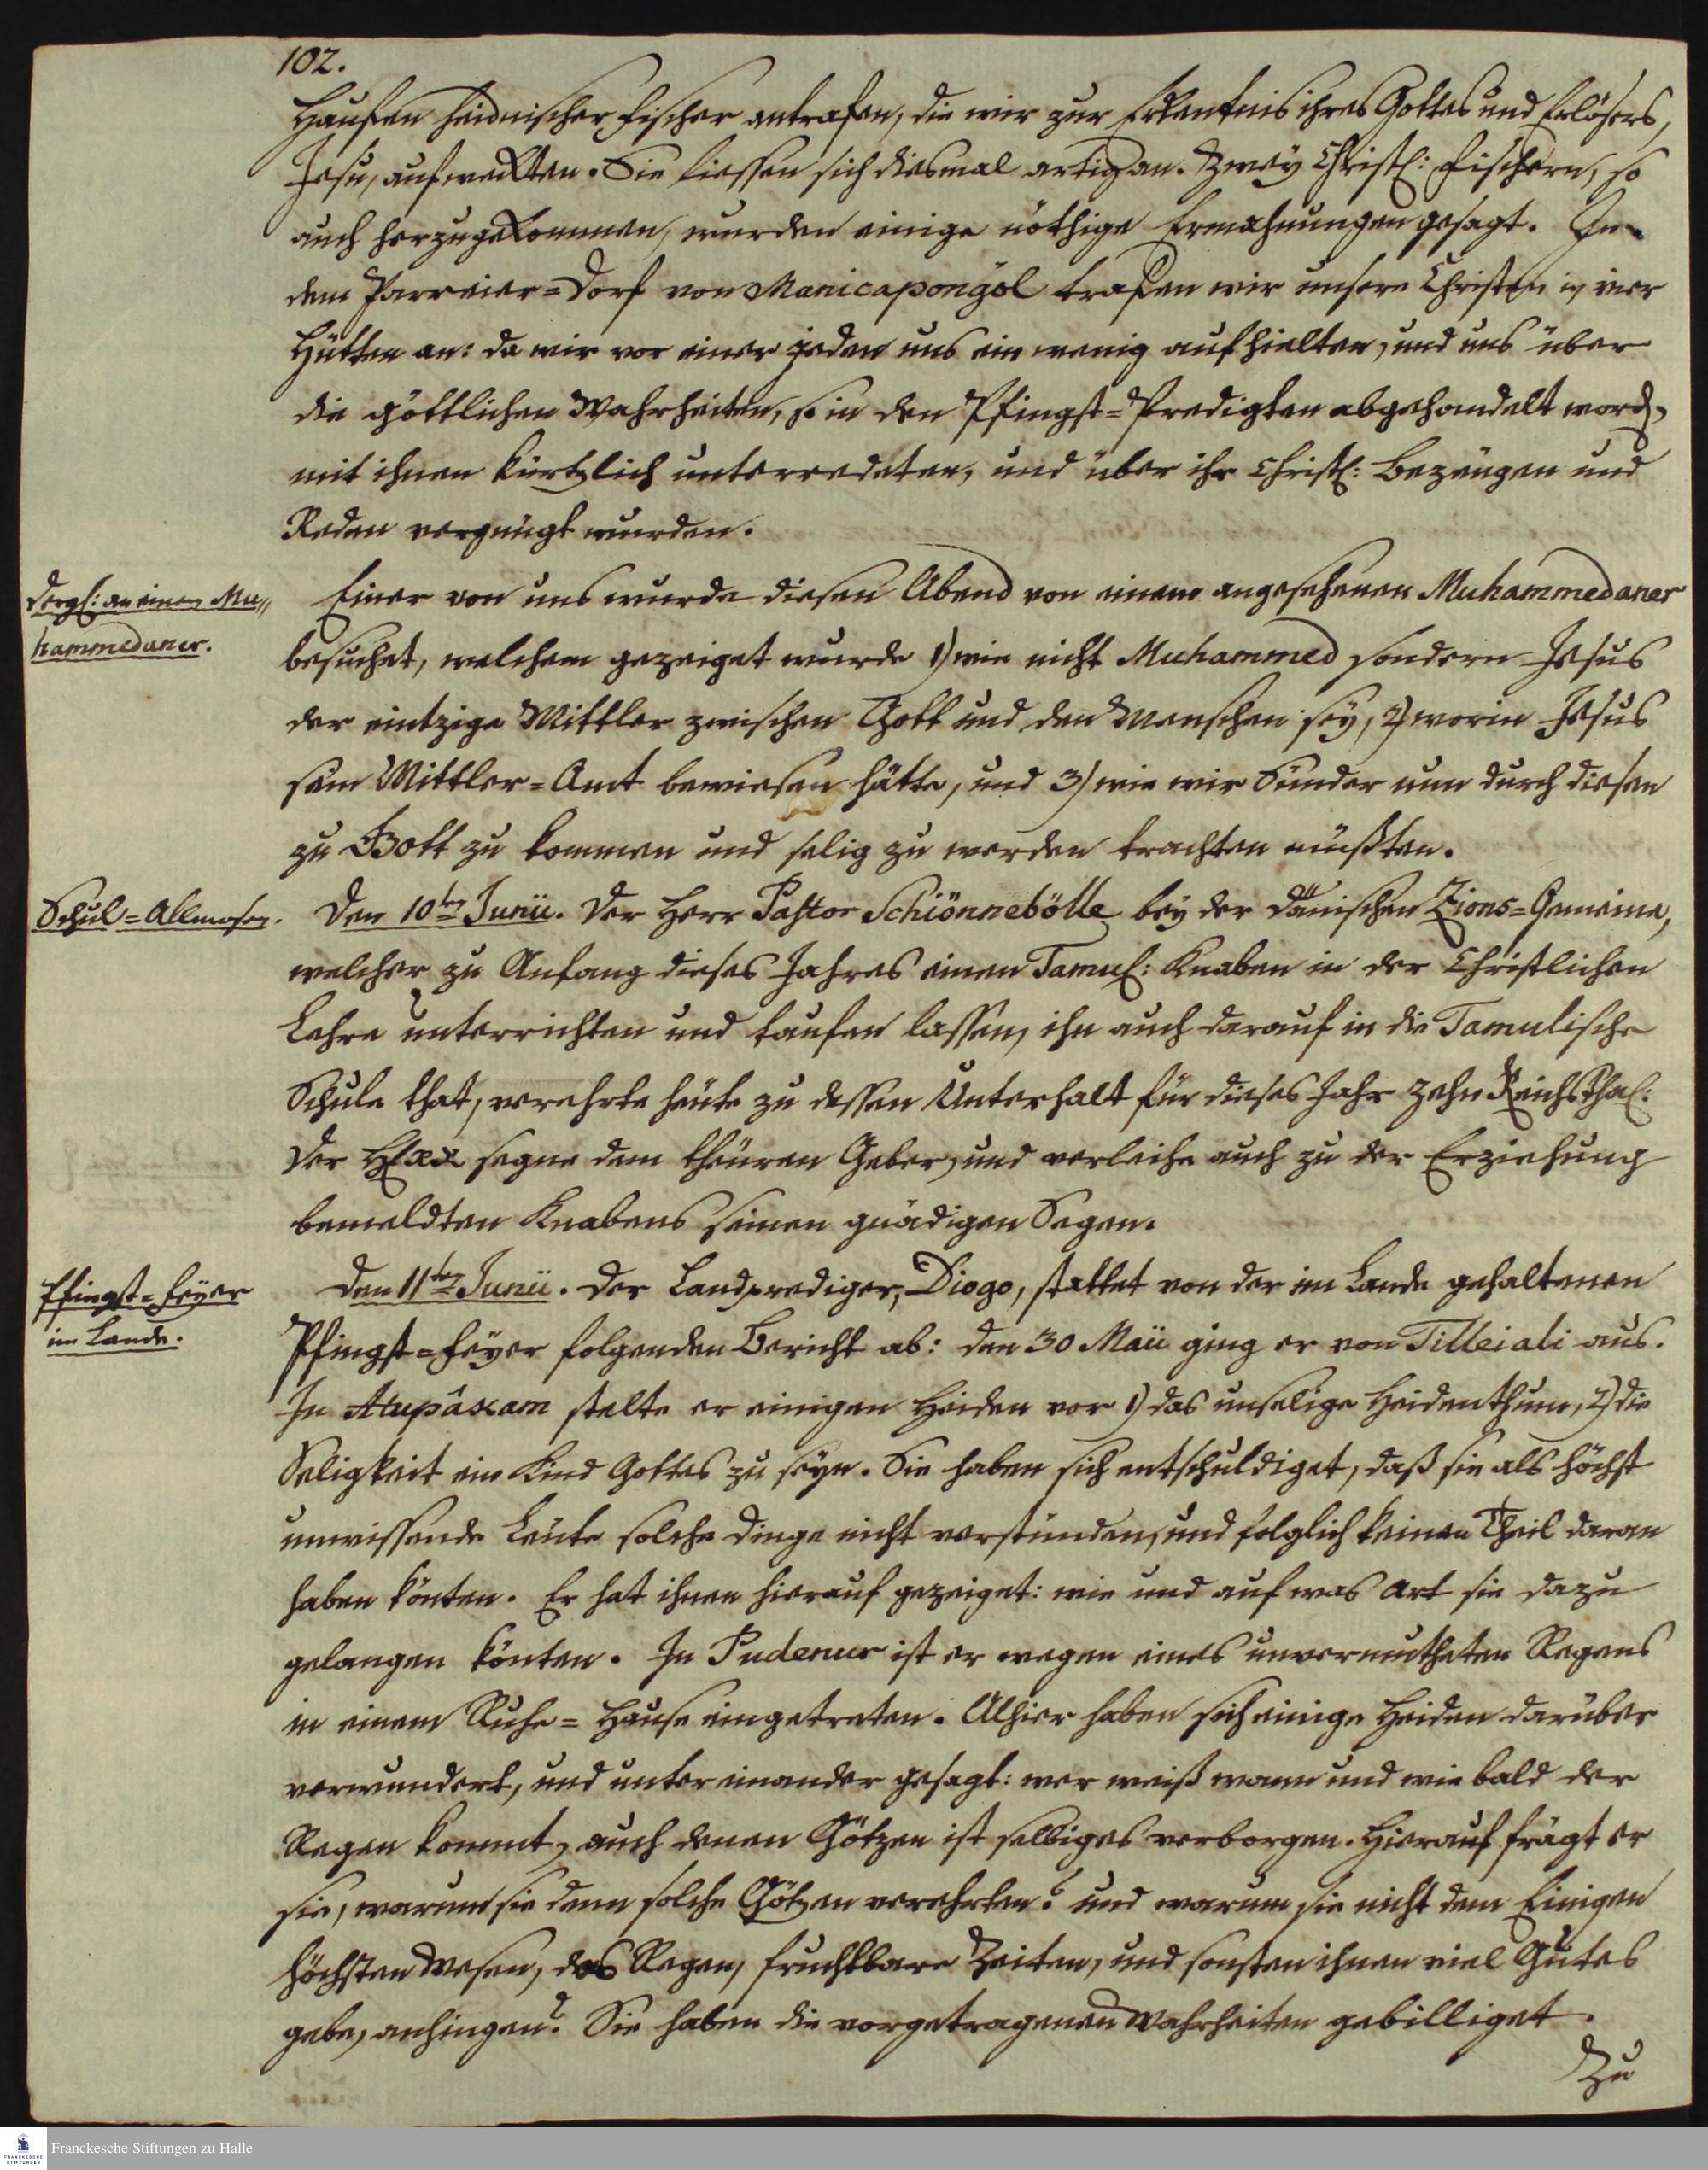 102.
Haufen heidnischer Fischer antrafen, die wir zur Erkentnis ihres Gottes und Erlösers,
Jesu, aufweckten. Sie liessen sich diesmal artig an. Zwey Christl: Fischern, so
auch herzugekommen, wurden einige nöthige Ermahnungen gesagt. In
dem Parreier=Dorf von Manicapongöl trafen wir unsere Christen in vier
Hütten an: da wir vor einer jeden uns ein wenig aufhielten, und uns über
die göttlichen Wahrheiten, so in den Pfingst=Predigten abgehandelt word,
mit ihnen kürtzlich unterredeten, und über ihr Christl: Bezeugen und
Reden vergnügt wurden.
Dergl: an einen Mu„
hammedaner.
Einer von uns wurde diesen Abend von einem angesehenen Muhammedaner
besuchet, welchem gezeiget wurde 1) wie nicht Muhammed sondern Jesus
der eintzige Mittler zwischen Gott und den Menschen sey, 2) worin Jesus
sein Mittler=Amt bewiesen hätte, und 3) wie wir Sünder nun durch diesen
zu Gott zu kommen und selig zu werden trachten müßten.
Schul=Allmosen.
Den 10ten Junii. Der Herr Pastor Schiönnebölle bey der Dänischen Zions=Gemeine,
welcher zu Anfang dieses Jahres einen Tamul: Knaben in der Christlichen
Lehre unterrichten und taufen lassen, ihn auch darauf in die Tamulische
Schule that, verehrte heute zu dessen Unterhalt für dieses Jahr zehn Reichsthal:
Der HErr segne dem theuren Geber, und verleihe auch zu der Erziehung
bemeldten Knabens seinen gnädigen Segen.
Pfingst=Feyer
im Lande.
Den 11ten Junii. Der Landprediger, Diogo, stattet von der im Lande gehaltenen
Pfingst=Feyer folgenden Bericht ab: den 30 Maii ging er von Tilleiali aus.
In Atupâxam stelte er einigen Heiden vor 1) das unselige Heidenthum, 2) die
Seligkeit ein Kind Gottes zu seyn. Sie haben sich entschuldiget, daß sie als höchst
unwissende Leute solche Dinge nicht verstünden, und folglich keinen Theil daran
haben könten. Er hat ihnen hierauf gezeiget: wie und auf was Art sie dazu
gelangen könten. In Pudenur ist er wegen eines unvermutheten Regens
in einem Ruhe=Hause eingetreten. Alhier haben sich einige Heiden darüber
verwundert, und unter einander gesagt: wer weiß wann und wie bald der
Regen kommt, auch denen Götzen ist selbiges verborgen. Hierauf frägt er
sie, warum sie denn solche Götzen verehrten? und warum sie nicht dem Einigen
höchsten Wesen, das Regen, fruchtbare Zeiten, und sonsten ihnen viel Gutes
gebe, anhingen? Sie haben die vorgetragenen Wahrheiten gebilliget.
Zu
Franckesche Stiftungen zu Halle